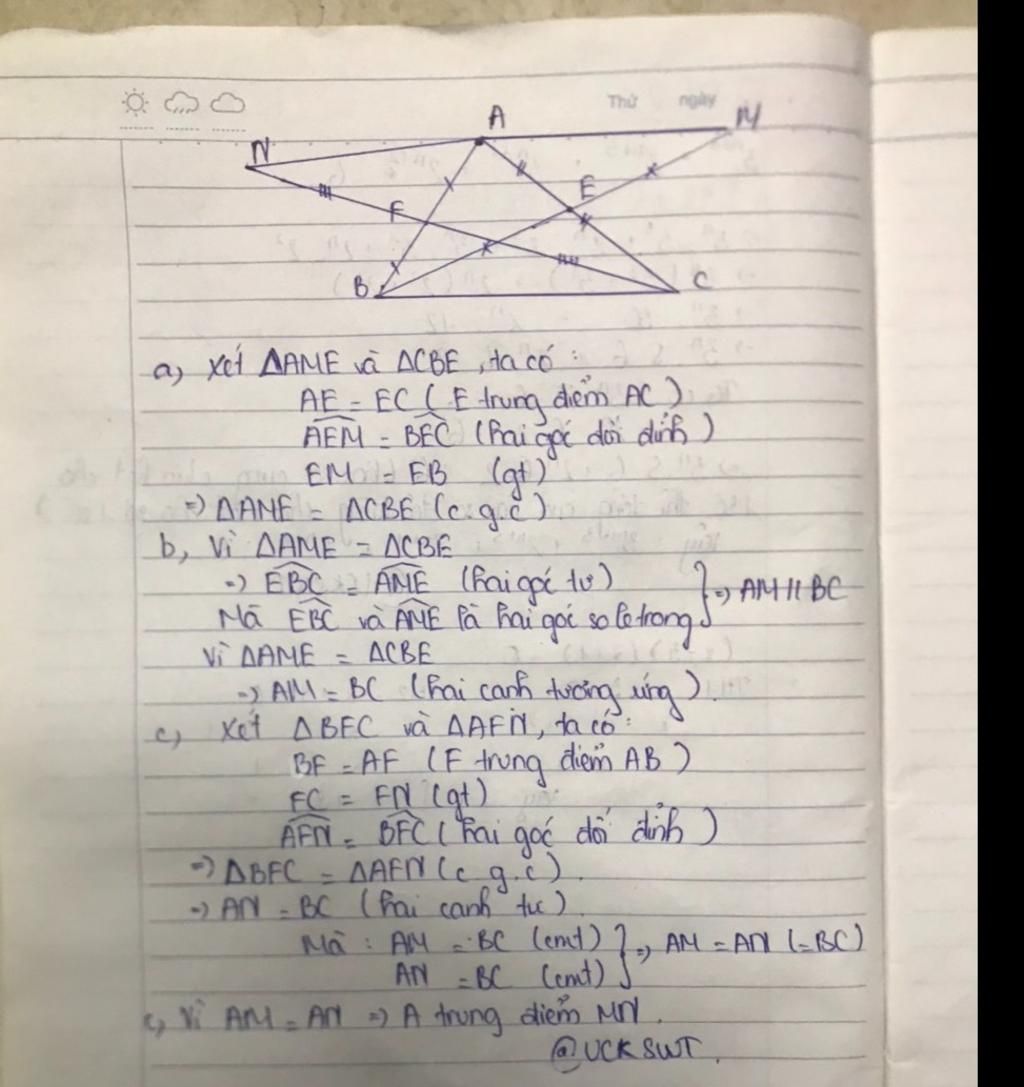 Thứ ngày
N A M
F E
B C
a, Xét ΔAME và ΔCBE, ta có:
AE = EC (E trung điểm AC)
AEM = BEC (hai góc đối đỉnh)
EM = EB (gt)
=> ΔAME = ΔCBE (c.g.c)
b, Vì ΔAME = ΔCBE
=> EBC = AME (hai góc tư) } => AM // BC
Mà EBC và AME là hai góc so le trong
Vì ΔAME = ΔCBE
=> AM = BC (hai cạnh tương ứng)
c, Xét ΔBFC và ΔAFN, ta có:
BF = AF (F trung điểm AB)
FC = FN (gt)
AFN = BFC (hai góc đối đỉnh)
=> ΔBFC = ΔAFN (c.g.c)
=> AN = BC (hai cạnh tư)
Mà: AM = BC (cmt) } => AM = AN (=BC)
AN = BC (cmt)
c, Vì AM = AN => A trung điểm MN.
@UCKSWT